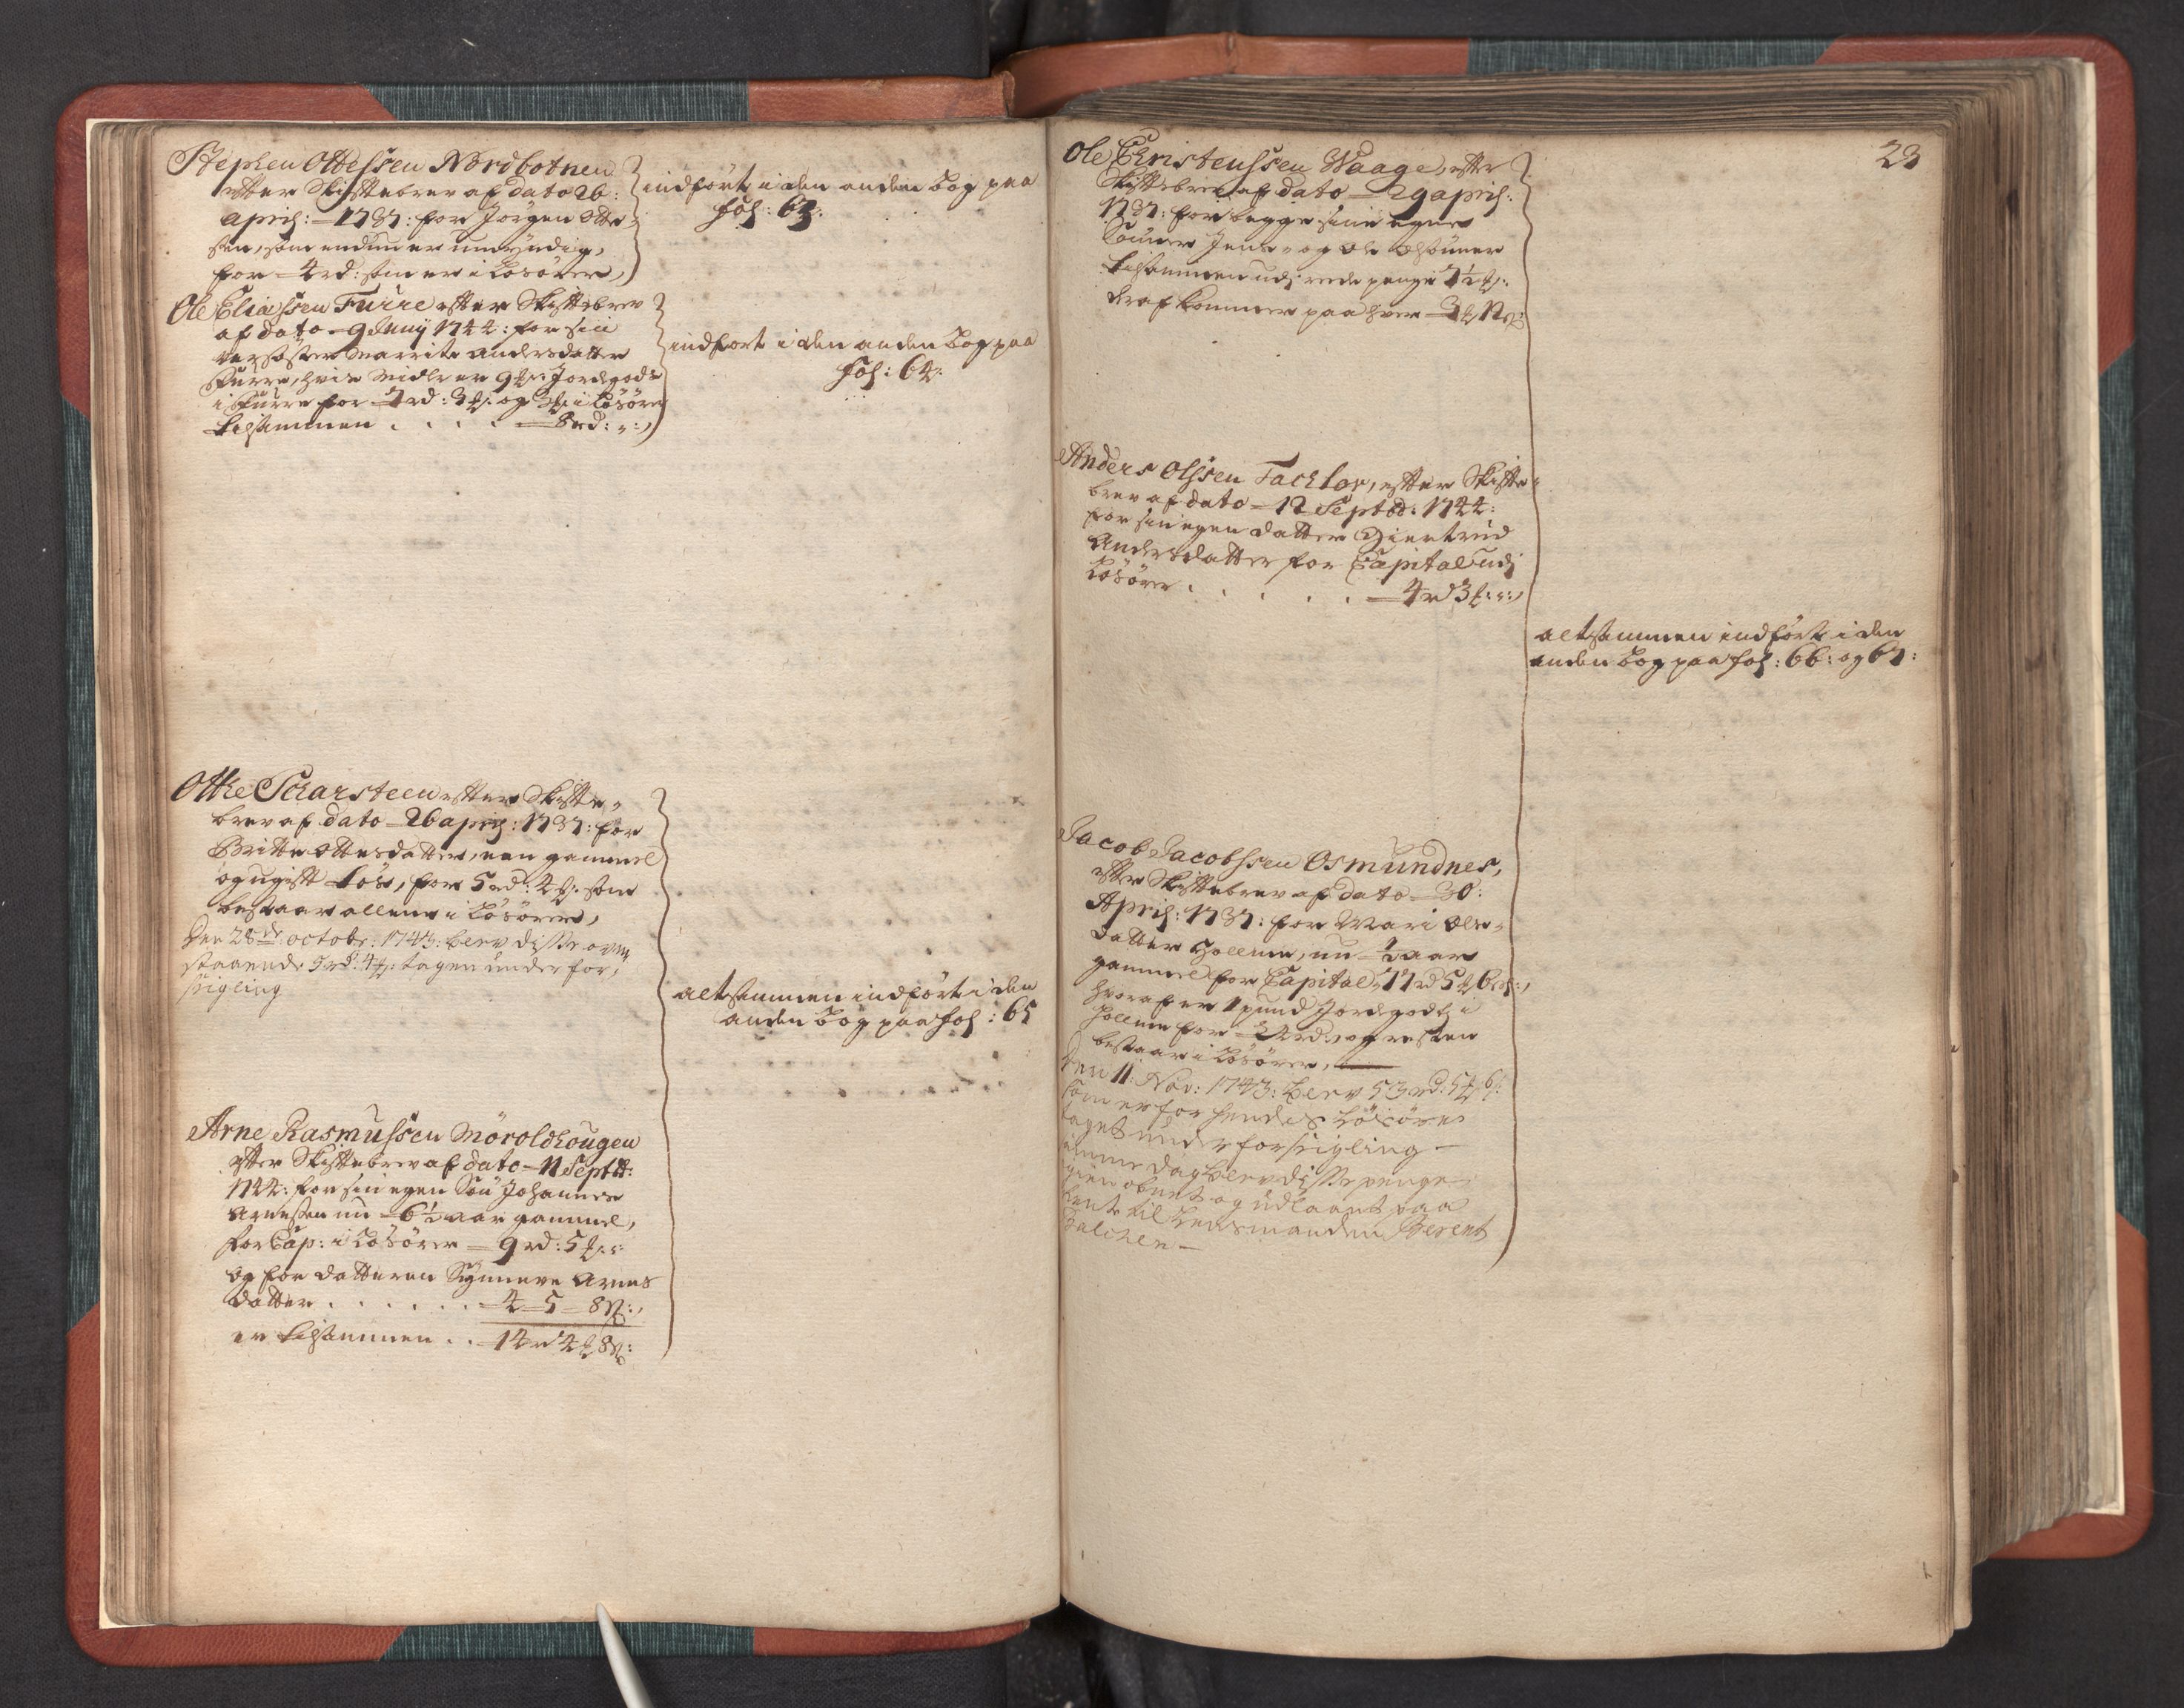 Stephen Ottessen Nordbotnen
efter Skiftebrev af dato 26:
April: 1737: for Jørgen Otte-
sen, som endnu er umyndig,
for 4 rd: som er i Løsøren,
indført i den anden bog paa
fol: 63:
Ole Eliassen Furre efter Skiftebrev
af dato 9 Juny 1744: for sin
Versøster Marrite Andersdatter
Furre, hvis Midler er Jordegods
i Furre for rd: 3 og i Løsøren
tilsammen . . . . 8 rd:
indført i den anden bog paa
fol: 64:
Otthe Scharsteen efter Skifte-
brev af dato 26 april: 1737: for
Britte Ottesdatter, een gammel
og ugift Tøs, for 5 rd: 4 som
bestaar allene i Løsøren,
Den 28de octobr: 1743: blev disse oven
staaende 5 rd: 4 tagen under for-
seigling
altsammen indført i den
anden bog paa fol: 65
Arne Rasmussen Møroldhougen
efter Skiftebrev af dato 11 Septbr:
1744: for sin egen Søn Johannes
Arnessen nu 6½ aar gammel,
for Cap: i Løsøren 9 rd: 5
og for datteren Synneve Arnes
datter . . . . . . 4 - 5 - 8 s:
er tilsammen . . 14 rd 4 8 s:
23
Ole Christenssen Waage, efter
Skiftebrev af dato 29 april:
1737: for begge sine egne
Sønner Jens og Ole Olsønner
tilsammen udi rede penge
deraf kommer paa hver
Anders Olssen Facklør, efter Skifte-
brev af dato 12 Septbr: 1744:
for sin egen datter Giertrud
Andersdatter for Capital udi
Løsøren . . . . . 4 rd 3
altsammen indført i den
anden bog paa fol: 66: og 67:
Jacob Jacobssen Osmundnes,
efter Skiftebrev af dato 30:
April: 1737: for Mari Ols-
datter nu aar
gammel for Capital
hvoraf er 1 pund Jordegods i
for rd: og resten
bestaar i Løsøren,
Den 11 Nov: 1743: blev 53 rd: 5 6 s:
som er for hendes Løsøre
taget under forseigling
samme dag blev disse penge
igien obnet og udlaant paa
Rente til Lensmanden Berent
Balchen